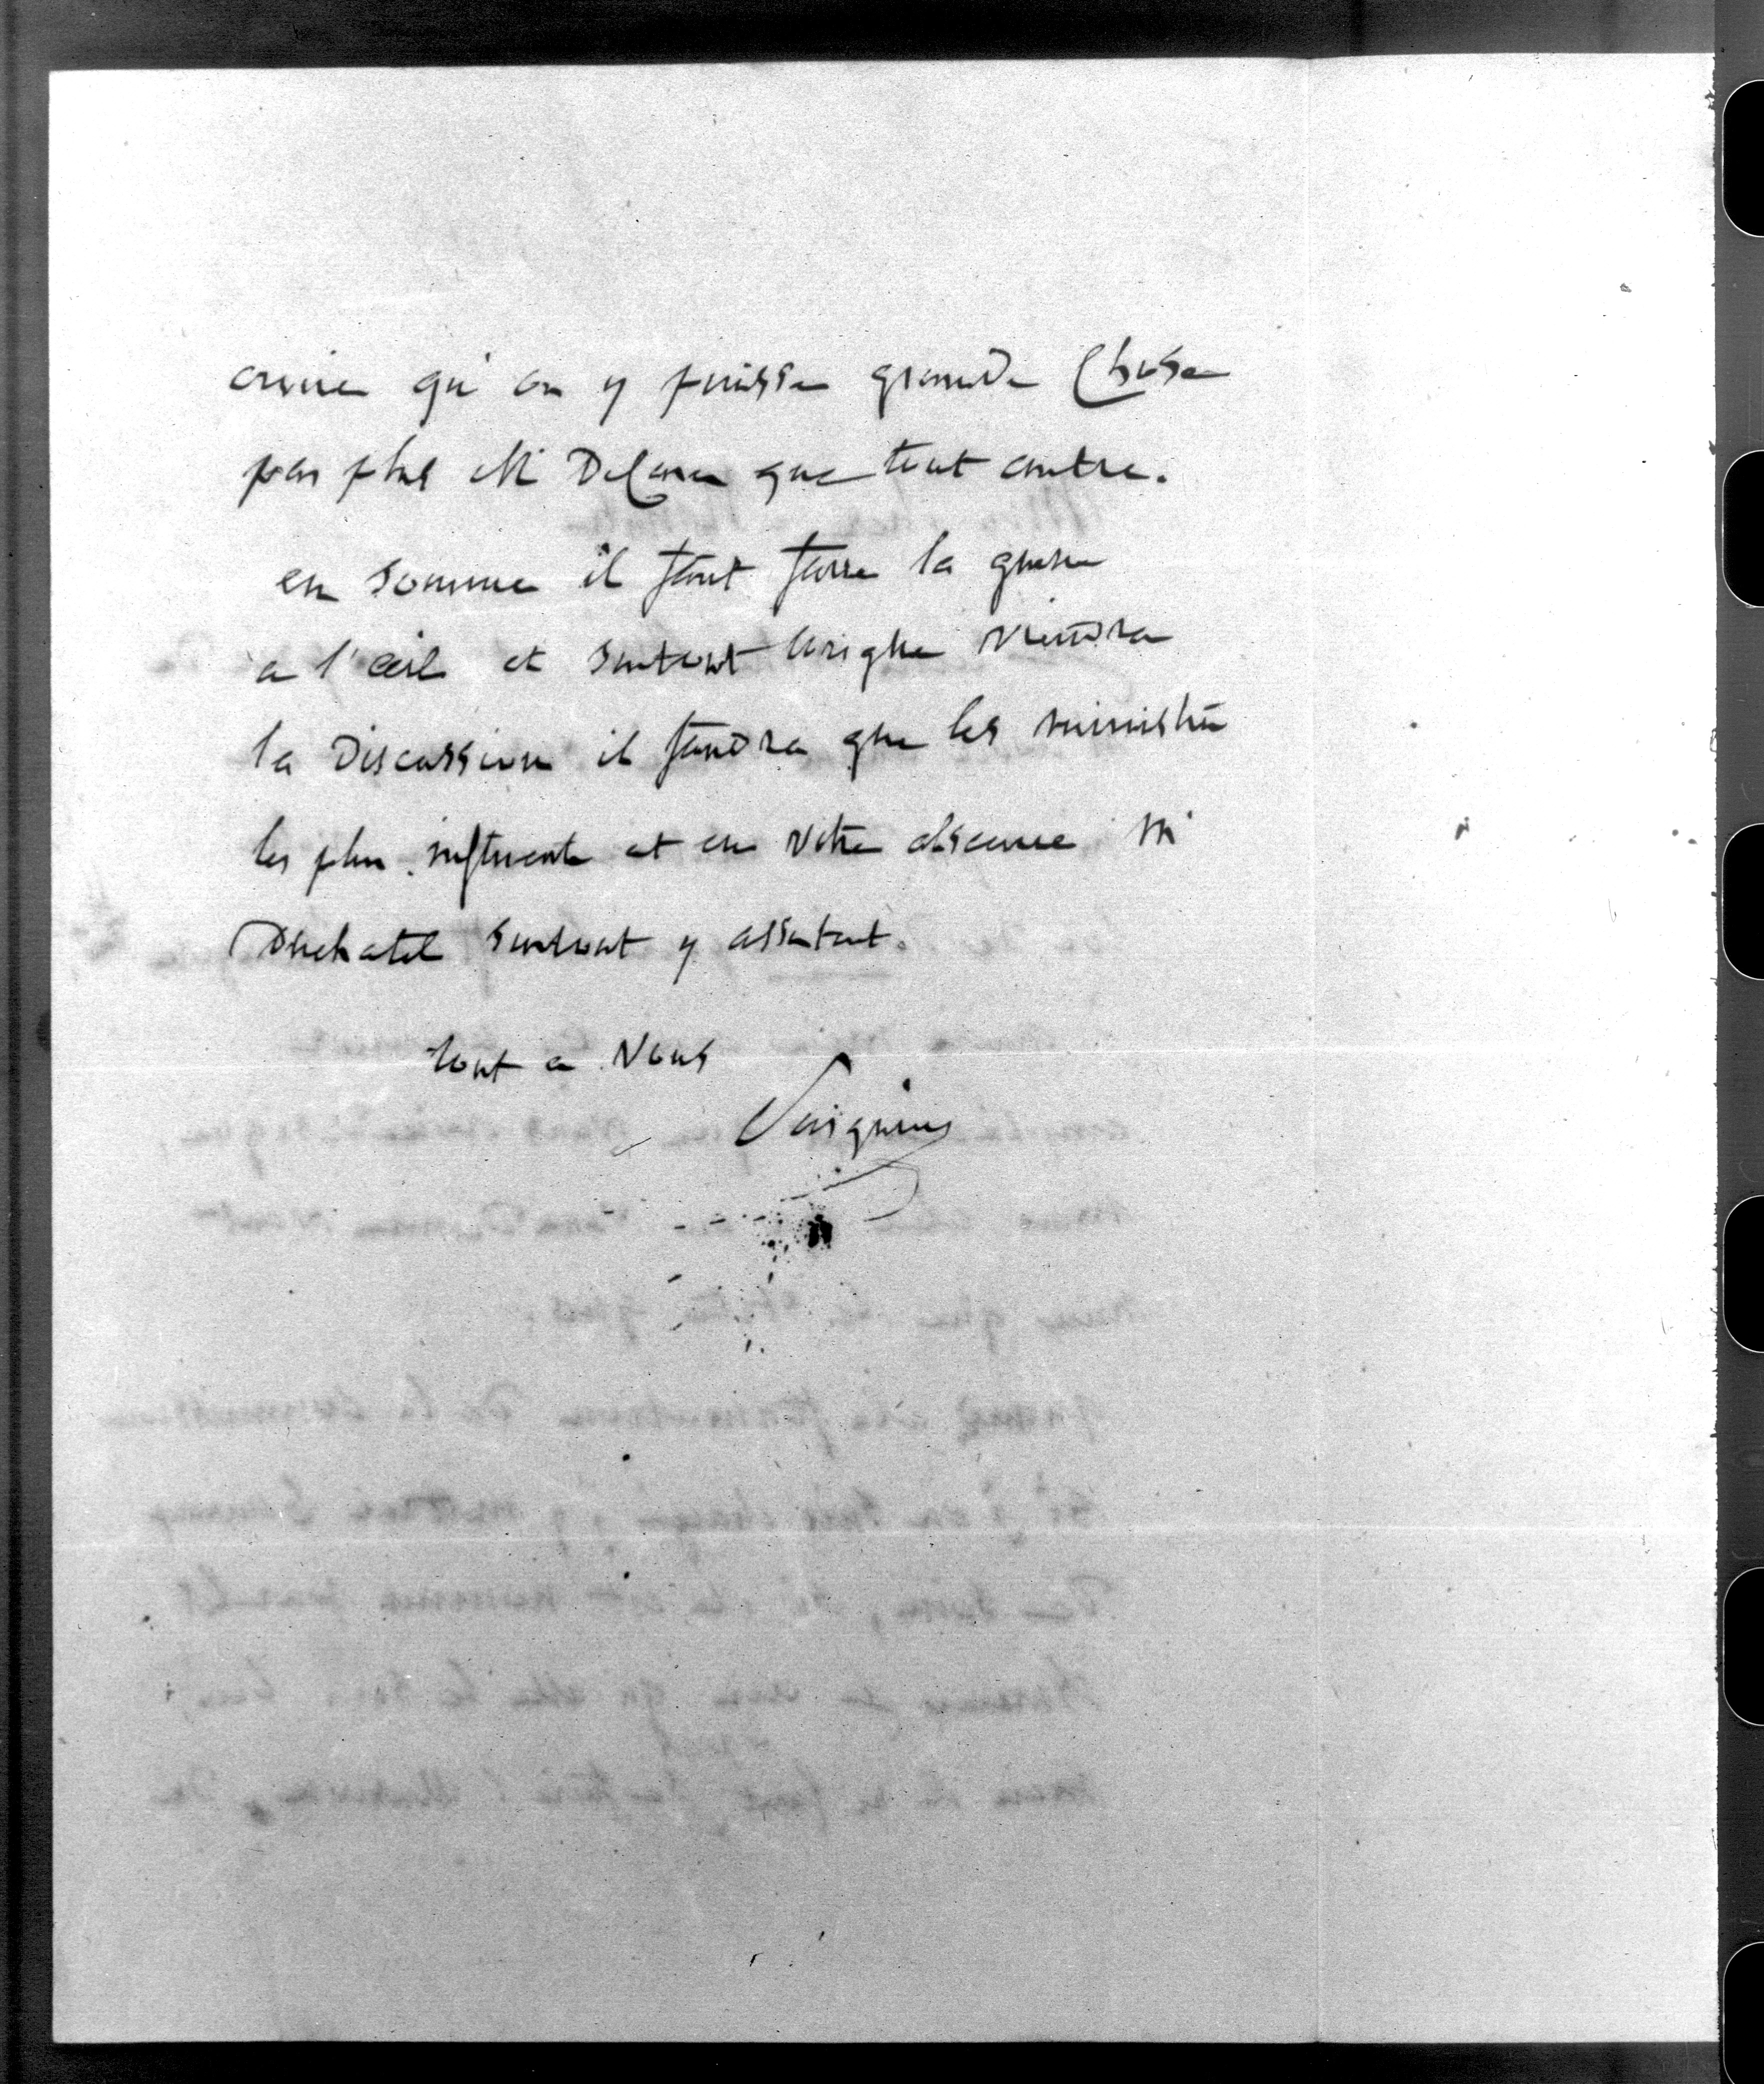 croire qu'on y puisse grande Chose
pas plus Mr Defaure que tout autre.
en somme il faut faire la guerre
a l'œil et surtout lorsque viendra
la Discussion il faudra que les ministres
les plus influents et en votre absence Mr
Duchatel surtout y assistent.
tout a vous